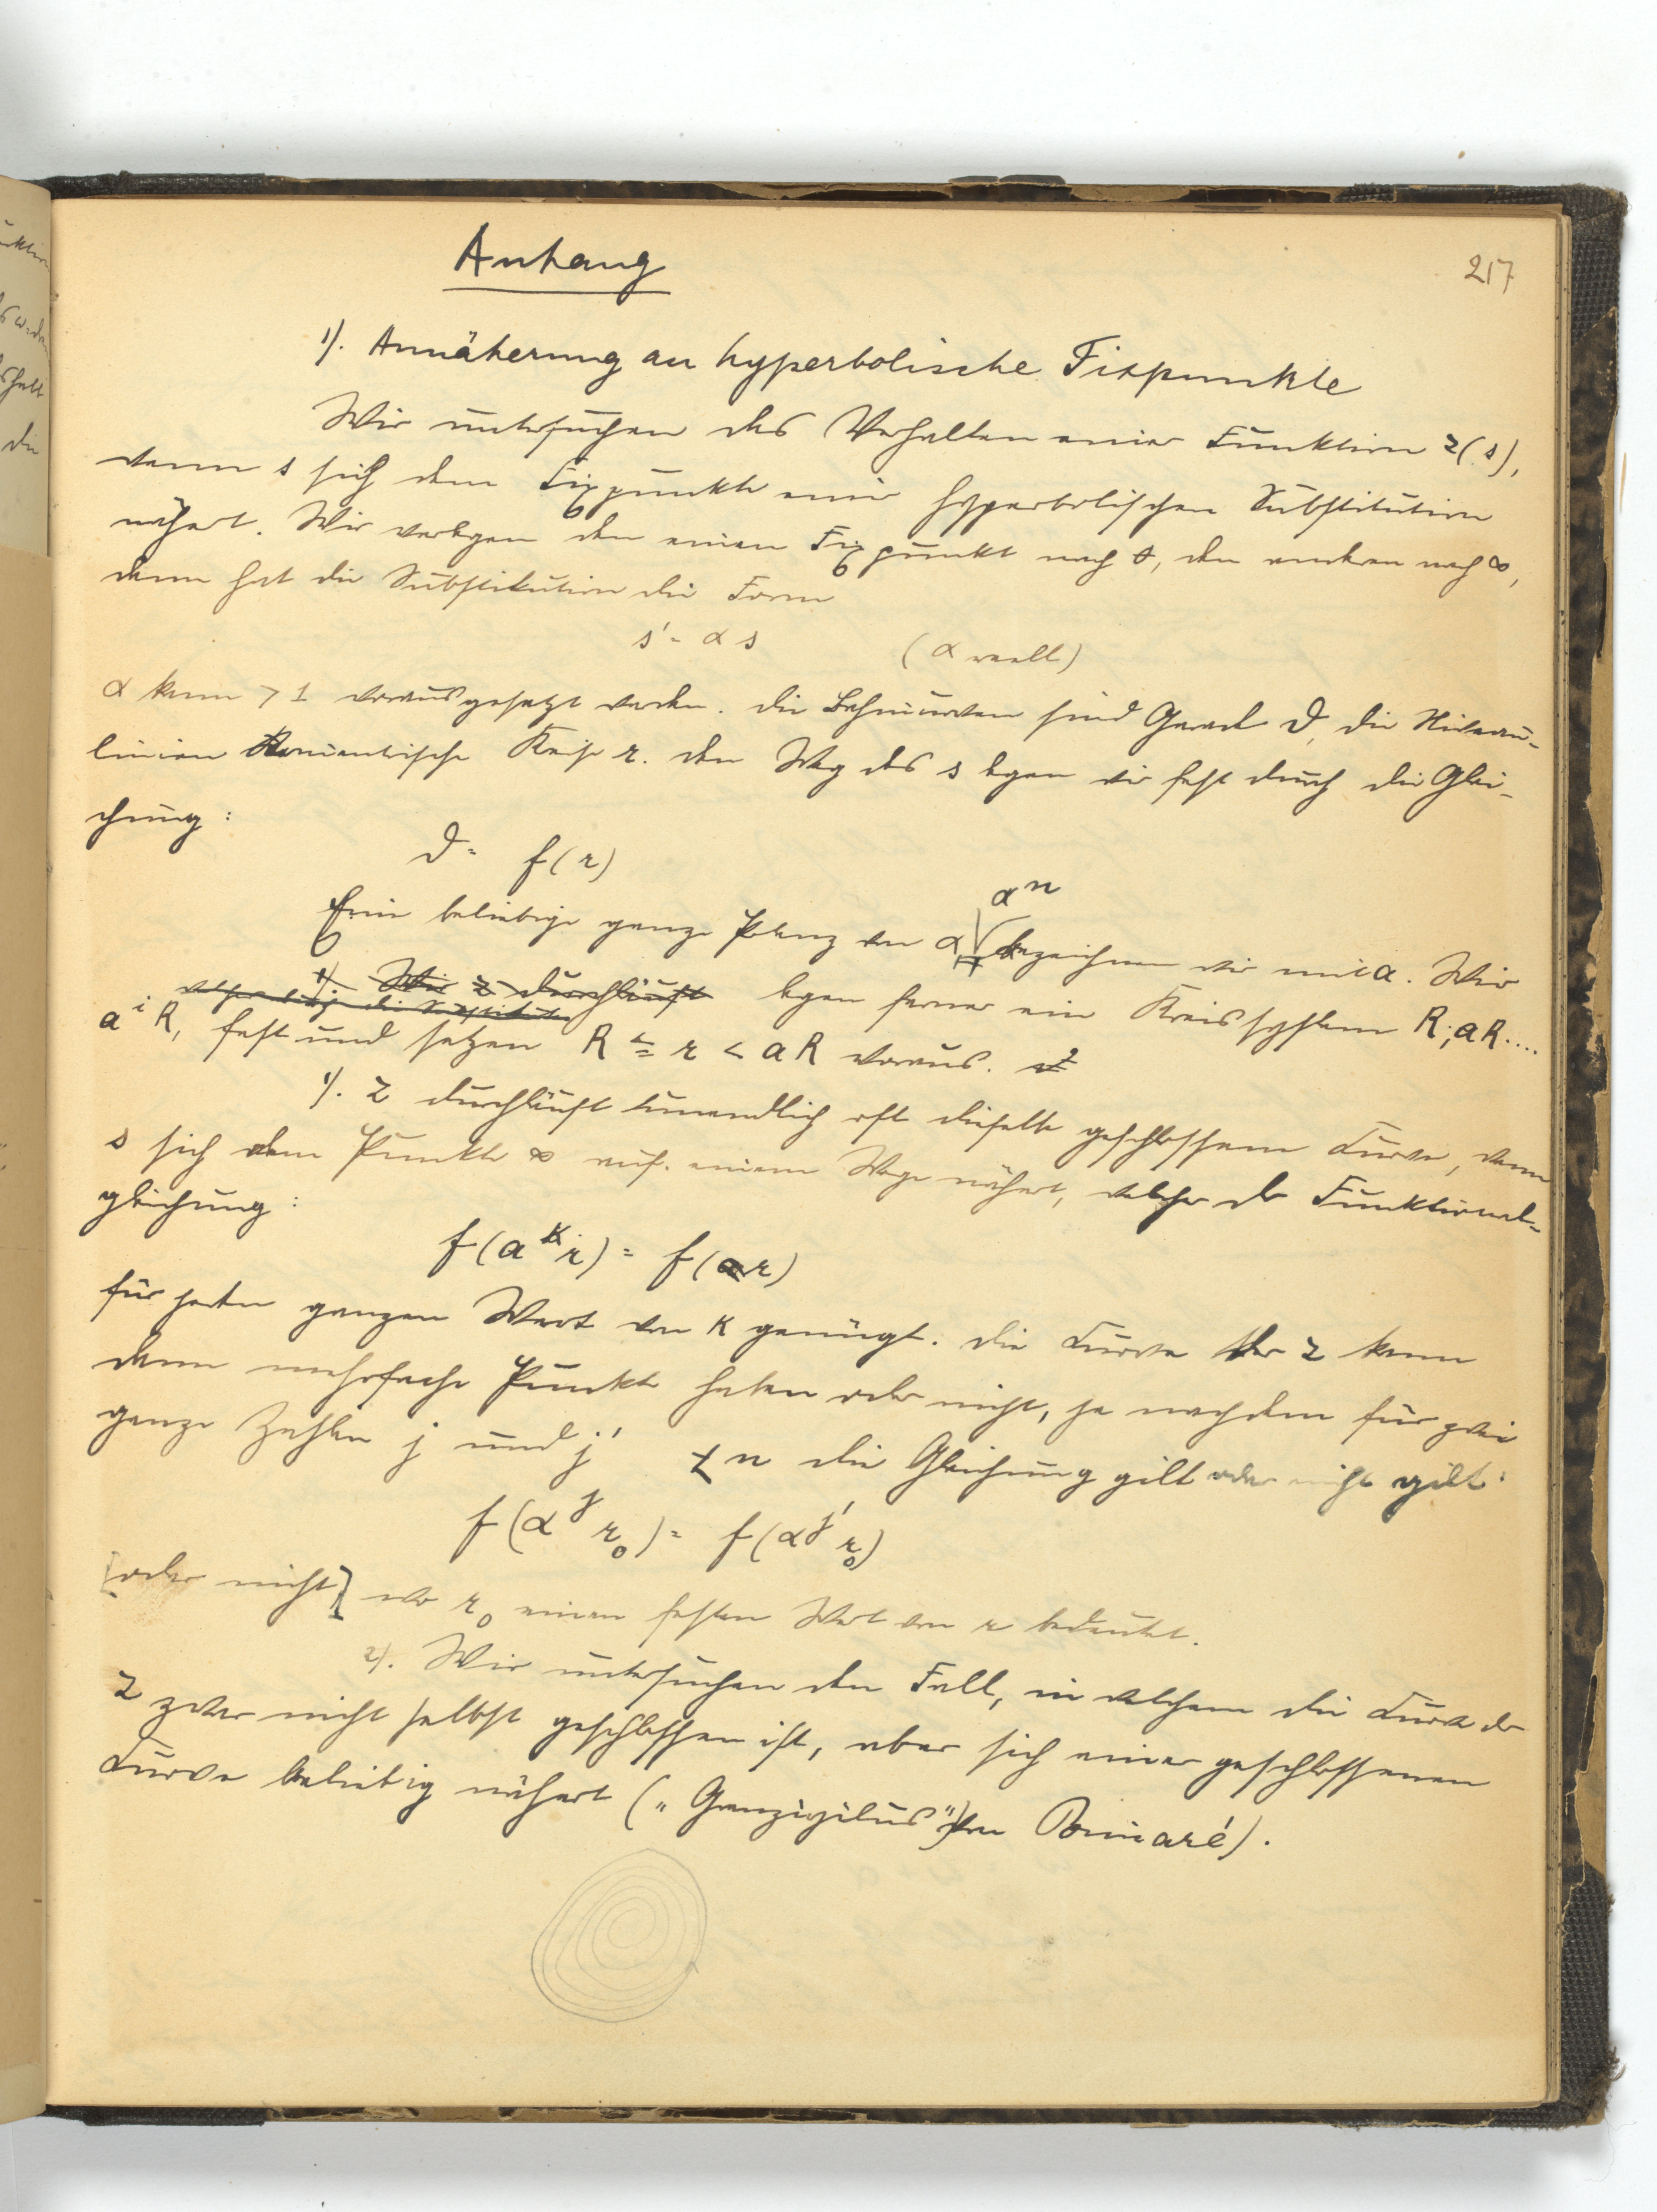 Anhang
217
1). Annäherung an hyperbolische Fixpunkte
Wir untersuchen das Verhalten einer Funktion z(s),
wenn s sich dem Fixpunkte einer hyperbolischen Substitution
nähert. Wir verlegen den einen Fixpunkt nach 0, den anderen nach ∞,
dann hat die Substitution die Form
s' = α s (α reell)
α kann > 1 vorausgesetzt werden. Die Bahncurven sind Gerade ϑ, die Niveau-
linien konzentrische Kreise r. Den Weg des s legen wir fest durch die Glei-
chung:
ϑ = f(r)
αⁿ
Eine beliebige ganze Potenz von α bezeichnen wir mit a. Wir
1) Wir z durchläuft legen ferner ein Kreissystem R, aR....
aⁱR, fest und setzen R ≦ r < aR voraus.
1). z durchläuft unendlich oft dieselbe geschlossene Curve, wenn
s sich dem Punkte ∞ auf einem Wege nähert, welcher der Funktional-
gleichung:
f(aᴷ r) = f(r)
für jeden ganzen Wert von K genügt. Die Curve der z kann
dann mehrfache Punkte haben oder nicht, je nachdem für zwei
ganze Zahlen j und j' < n die Gleichung gilt oder nicht gilt:
f(α^j r₀) = f(α^j' r₀)
[oder nicht] wo r₀ einen festen Wert von r bedeutet.
2). Wir untersuchen den Fall, in welchem die Curve der
z zwar nicht selbst geschlossen ist, aber sich einer geschlossenen
Curve beliebig nähert („Grenzzyklus" von Poincaré).